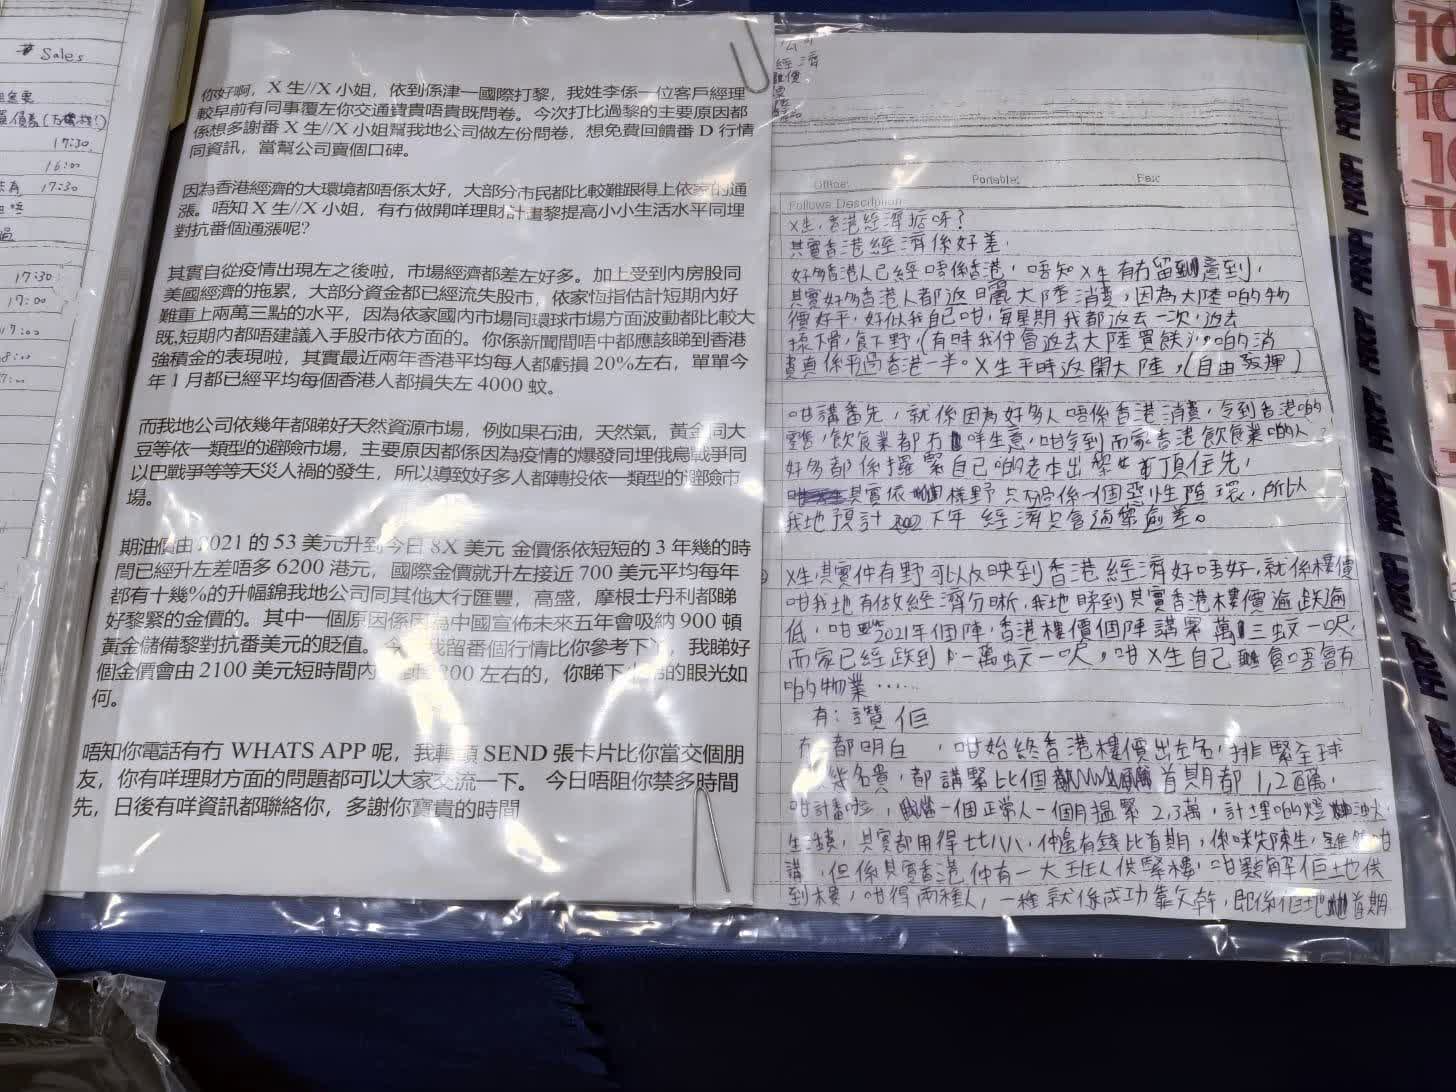 Sales
17:30
16:00
17:30
17:30
17:00
你好啊，X 生//X 小姐，依到係津一國際打黎，我姓李係一位客戶經理
較早前有同事覆左你交通費貴唔貴既問卷。今次打比過黎的主要原因都
係想多謝番 X 生//X 小姐幫我地公司做左份問卷，想免費回饋番 D 行情
同資訊，當幫公司賣個口碑。
因為香港經濟的大環境都唔係太好，大部分市民都比較難跟得上依家的通
漲。唔知 X 生//X 小姐，有冇做開咩理財計畫黎提高小小生活水平同埋
對抗番個通漲呢?
其實自從疫情出現左之後啦，市場經濟都差左好多。加上受到內房股同
美國經濟的拖累，大部分資金都已經流失股市，依家恆指估計短期內好
難重上兩萬三點的水平，因為依家國內市場同環球市場方面波動都比較大
既,短期內都唔建議入手股市依方面的。你係新聞間唔中都應該睇到香港
強積金的表現啦，其實最近兩年香港平均每人都虧損 20%左右，單單今
年 1 月都已經平均每個香港人都損失左 4000 蚊。
而我地公司依幾年都睇好天然資源市場，例如果石油，天然氣，黃金同大
豆等依一類型的避險市場，主要原因都係因為疫情的爆發同埋俄烏戰爭同
以巴戰爭等等天災人禍的發生，所以導致好多人都轉投依一類型的避險市
場。
期油價由 2021 的 53 美元升到今日 8X 美元 金價係依短短的 3 年幾的時
間已經升左差唔多 6200 港元，國際金價就升左接近 700 美元平均每年
都有十幾%的升幅錦我地公司同其他大行匯豐，高盛，摩根士丹利都睇
好黎緊的金價的。其中一個原因係因為中國宣佈未來五年會吸納 900 頓
黃金儲備黎對抗番美元的貶值。今 我留番個行情比你參考下，我睇好
個金價會由 2100 美元短時間內 00 左右的，你睇下 的眼光如
何。
唔知你電話有冇 WHATS APP 呢，我轉頭 SEND 張卡片比你當交個朋
友，你有咩理財方面的問題都可以大家交流一下。 今日唔阻你禁多時間
先，日後有咩資訊都聯絡你，多謝你寶貴的時間
經濟
Office: Portable: Fax:
Follows Description
X生，香港經濟掂呀?
其實香港經濟係好差，
好多香港人已經唔係香港，唔知X生有冇留意到，
其實好多香港人都返曬大陸消費，因為大陸啲物
價好平，好似我自己咁，每星期我都返去一次，返去
按下骨，食下野，(有時我仲會返去大陸買餸)，啲消
費真係平過香港一半。X生平時返開大陸，(自由發揮)
咁講番先，就係因為好多人唔係香港消費，令到香港啲
零售，飲食業都冇咩生意，咁令到而家香港飲食業啲人
好多都係攞緊自己啲老本出黎頂住先，
其實依樣野只不過係一個惡性循環，所以
我地預計下年 經濟只會過黎愈差。
X生，其實件有野可以反映到香港經濟好唔好，就係樓價
咁我地有做經濟分晰，我地睇到其實香港樓價愈跌愈
低，咁2021年個陣，香港樓價個陣講緊萬三蚊一呎
而家已經跌到一萬蚊一呎，咁X生自己會唔會有
啲物業……
有：讚佢
冇 都明白，咁始終香港樓價出左名，排緊全球
幾名貴，都講緊比個首期都 1,2百萬，
咁計番啦，一個正常人一個月搵緊 2,3萬，計埋啲燈油火
生活費，其實都用得七七八八，仲邊有錢比首期，係咪先陳生，雖然咁
講，但係其實香港仲有一大班人供緊樓，咁點解佢地供
到樓，咁得兩種人，一種就係成功靠父幹，即係佢地首期